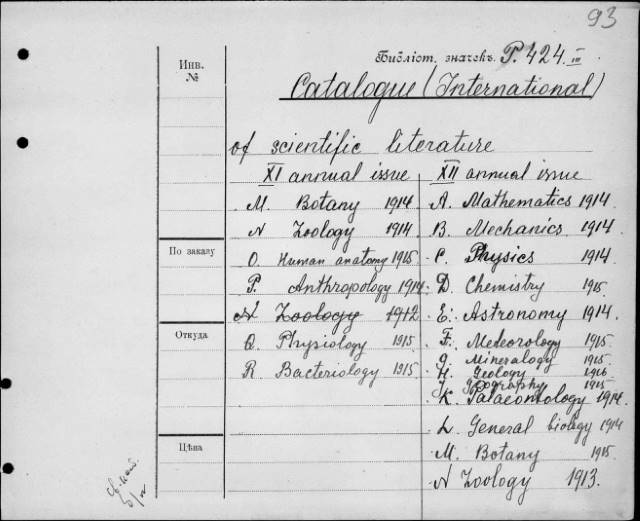 93
Библіот. значекъ P. 424. III
Catalogue (International)
of scientific literature
XI annual issue
M. Botany 1914
N Zoology 1914
O. Human anatomy 1915
P. Anthropology 1914
N Zoology 1912
Q. Physiology 1915
R. Bacteriology 1915
XII annual issue
A. Mathematics 1914.
B. Mechanics 1914
C. Physics 1914
D. Chemistry 1915.
E. Astronomy 1914.
F. Meteorology 1915
G. Mineralogy 1915.
H. Geology 1916
J. Geography 1915
K. Palaeontology 1914.
L. General biology 1914
M. Botany 1915.
N Zoology 1913.
Инв.
№
По заказу
Откуда
Цѣна